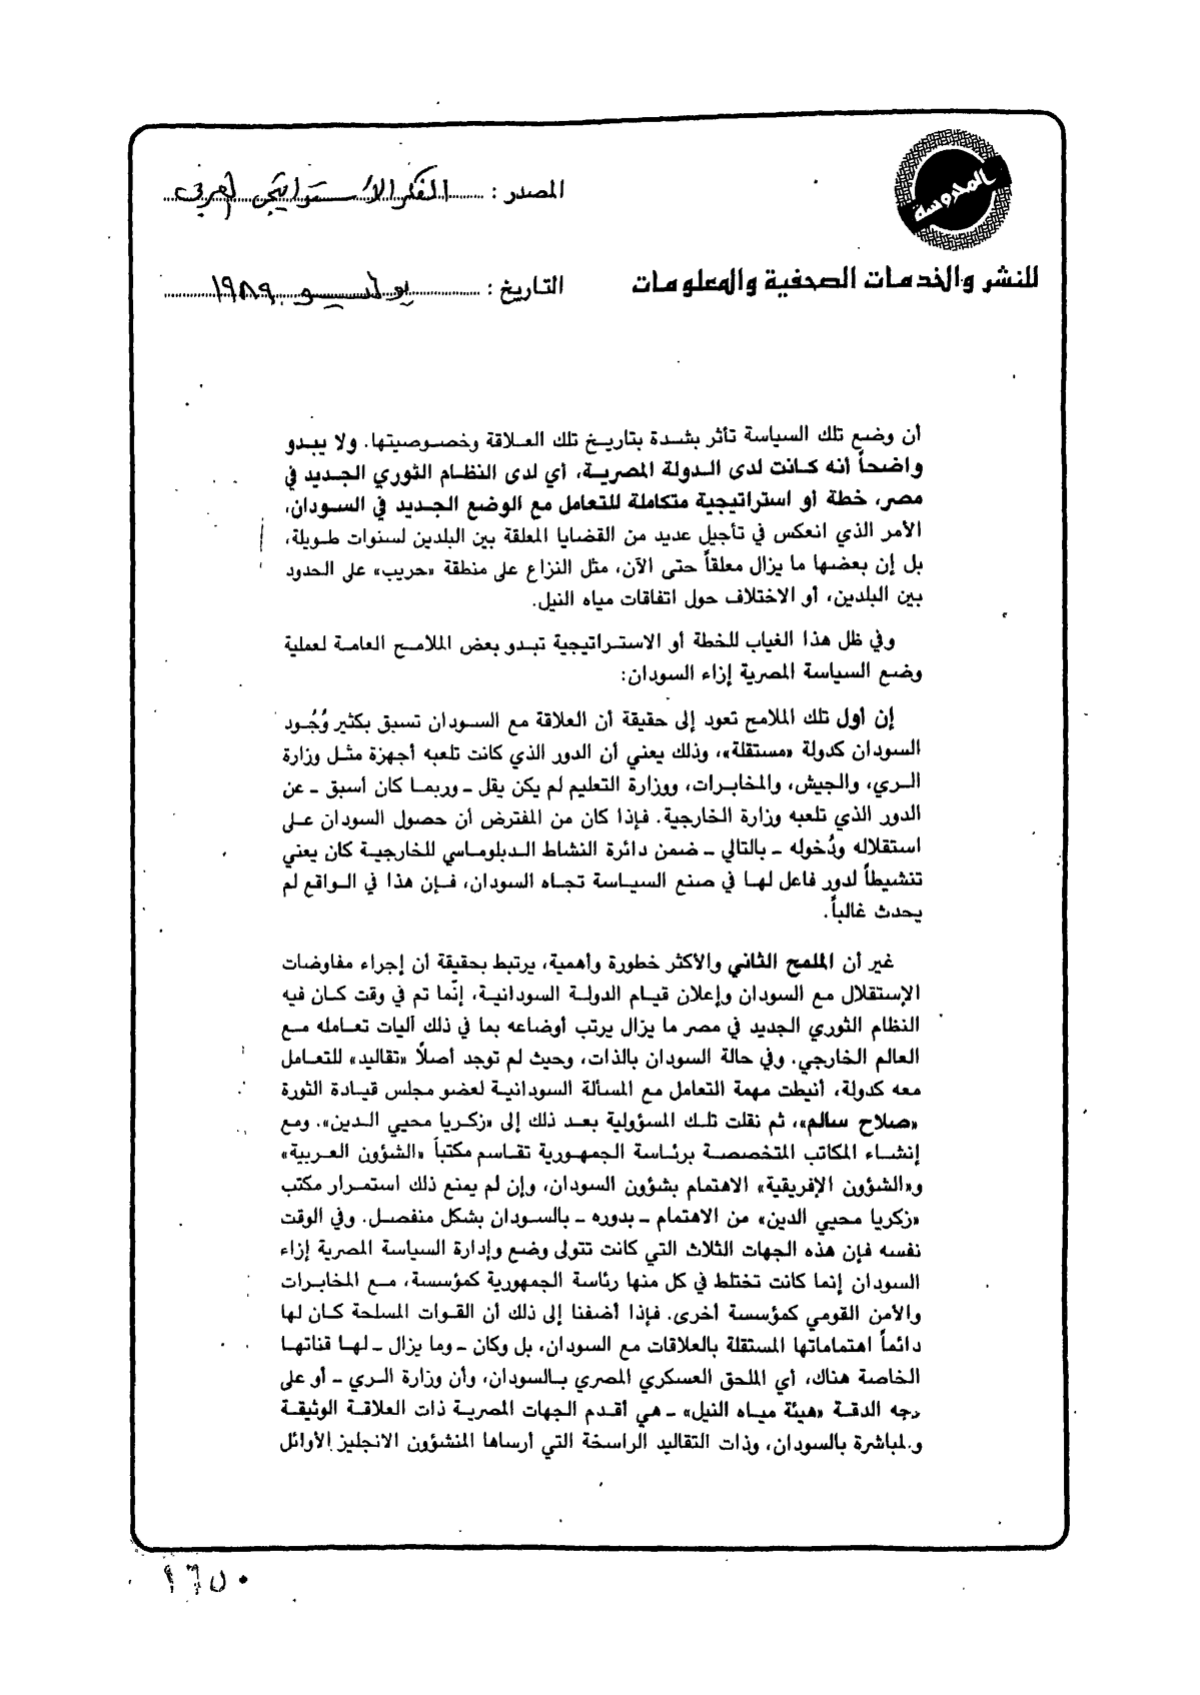 المحروسة
للنشر والخدمات الصحفية والمعلومات
المصدر : الفكر الاستراتيجي العربي
التاريخ : يوليو ١٩٨٩
أن وضع تلك السياسة تأثر بشدة بتاريخ تلك العلاقة وخصوصيتها. ولا يبدو
واضحاً أنه كانت لدى الدولة المصرية، أي لدى النظام الثوري الجديد في
مصر، خطة أو استراتيجية متكاملة للتعامل مع الوضع الجديد في السودان،
الأمر الذي انعكس في تأجيل عديد من القضايا المعلقة بين البلدين لسنوات طويلة،
بل إن بعضها ما يزال معلقاً حتى الآن، مثل النزاع على منطقة «حريب» على الحدود
بين البلدين، أو الاختلاف حول اتفاقات مياه النيل.
وفي ظل هذا الغياب للخطة أو الاستراتيجية تبدو بعض الملامح العامة لعملية
وضع السياسة المصرية إزاء السودان:
إن أول تلك الملامح تعود إلى حقيقة أن العلاقة مع السودان تسبق بكثير وُجُود
السودان كدولة «مستقلة»، وذلك يعني أن الدور الذي كانت تلعبه أجهزة مثل وزارة
الري، والجيش، والمخابرات، ووزارة التعليم لم يكن يقل ـ وربما كان أسبق ـ عن
الدور الذي تلعبه وزارة الخارجية. فإذا كان من المفترض أن حصول السودان على
استقلاله ودُخوله ـ بالتالي ـ ضمن دائرة النشاط الدبلوماسي للخارجية كان يعني
تنشيطاً لدور فاعل لها في صنع السياسة تجاه السودان، فإن هذا في الواقع لم
يحدث غالباً.
غير أن الملمح الثاني والأكثر خطورة وأهمية، يرتبط بحقيقة أن إجراء مفاوضات
الإستقلال مع السودان وإعلان قيام الدولة السودانية، إنّما تم في وقت كان فيه
النظام الثوري الجديد في مصر ما يزال يرتب أوضاعه بما في ذلك آليات تعامله مع
العالم الخارجي. وفي حالة السودان بالذات، وحيث لم توجد أصلاً «تقاليد» للتعامل
معه كدولة، أنيطت مهمة التعامل مع المسألة السودانية لعضو مجلس قيادة الثورة
«صلاح سالم»، ثم نقلت تلك المسؤولية بعد ذلك إلى «زكريا محيي الدين». ومع
إنشاء المكاتب المتخصصة برئاسة الجمهورية تقاسم مكتباً «الشؤون العربية»
و«الشؤون الإفريقية» الاهتمام بشؤون السودان، وإن لم يمنع ذلك استمرار مكتب
«زكريا محيي الدين» من الاهتمام ـ بدوره ـ بالسودان بشكل منفصل. وفي الوقت
نفسه فإن هذه الجهات الثلاث التي كانت تتولى وضع وإدارة السياسة المصرية إزاء
السودان إنما كانت تختلط في كل منها رئاسة الجمهورية كمؤسسة، مع المخابرات
والأمن القومي كمؤسسة أخرى. فإذا أضفنا إلى ذلك أن القوات المسلحة كان لها
دائماً اهتماماتها المستقلة بالعلاقات مع السودان، بل وكان ـ وما يزال ـ لها قناتها
الخاصة هناك، أي الملحق العسكري المصري بالسودان، وأن وزارة الري ـ أو على
وجه الدقة «هيئة مياه النيل» ـ هي أقدم الجهات المصرية ذات العلاقة الوثيقة
والمباشرة بالسودان، وذات التقاليد الراسخة التي أرساها المنشؤون الانجليز الأوائل
١٦٥٠